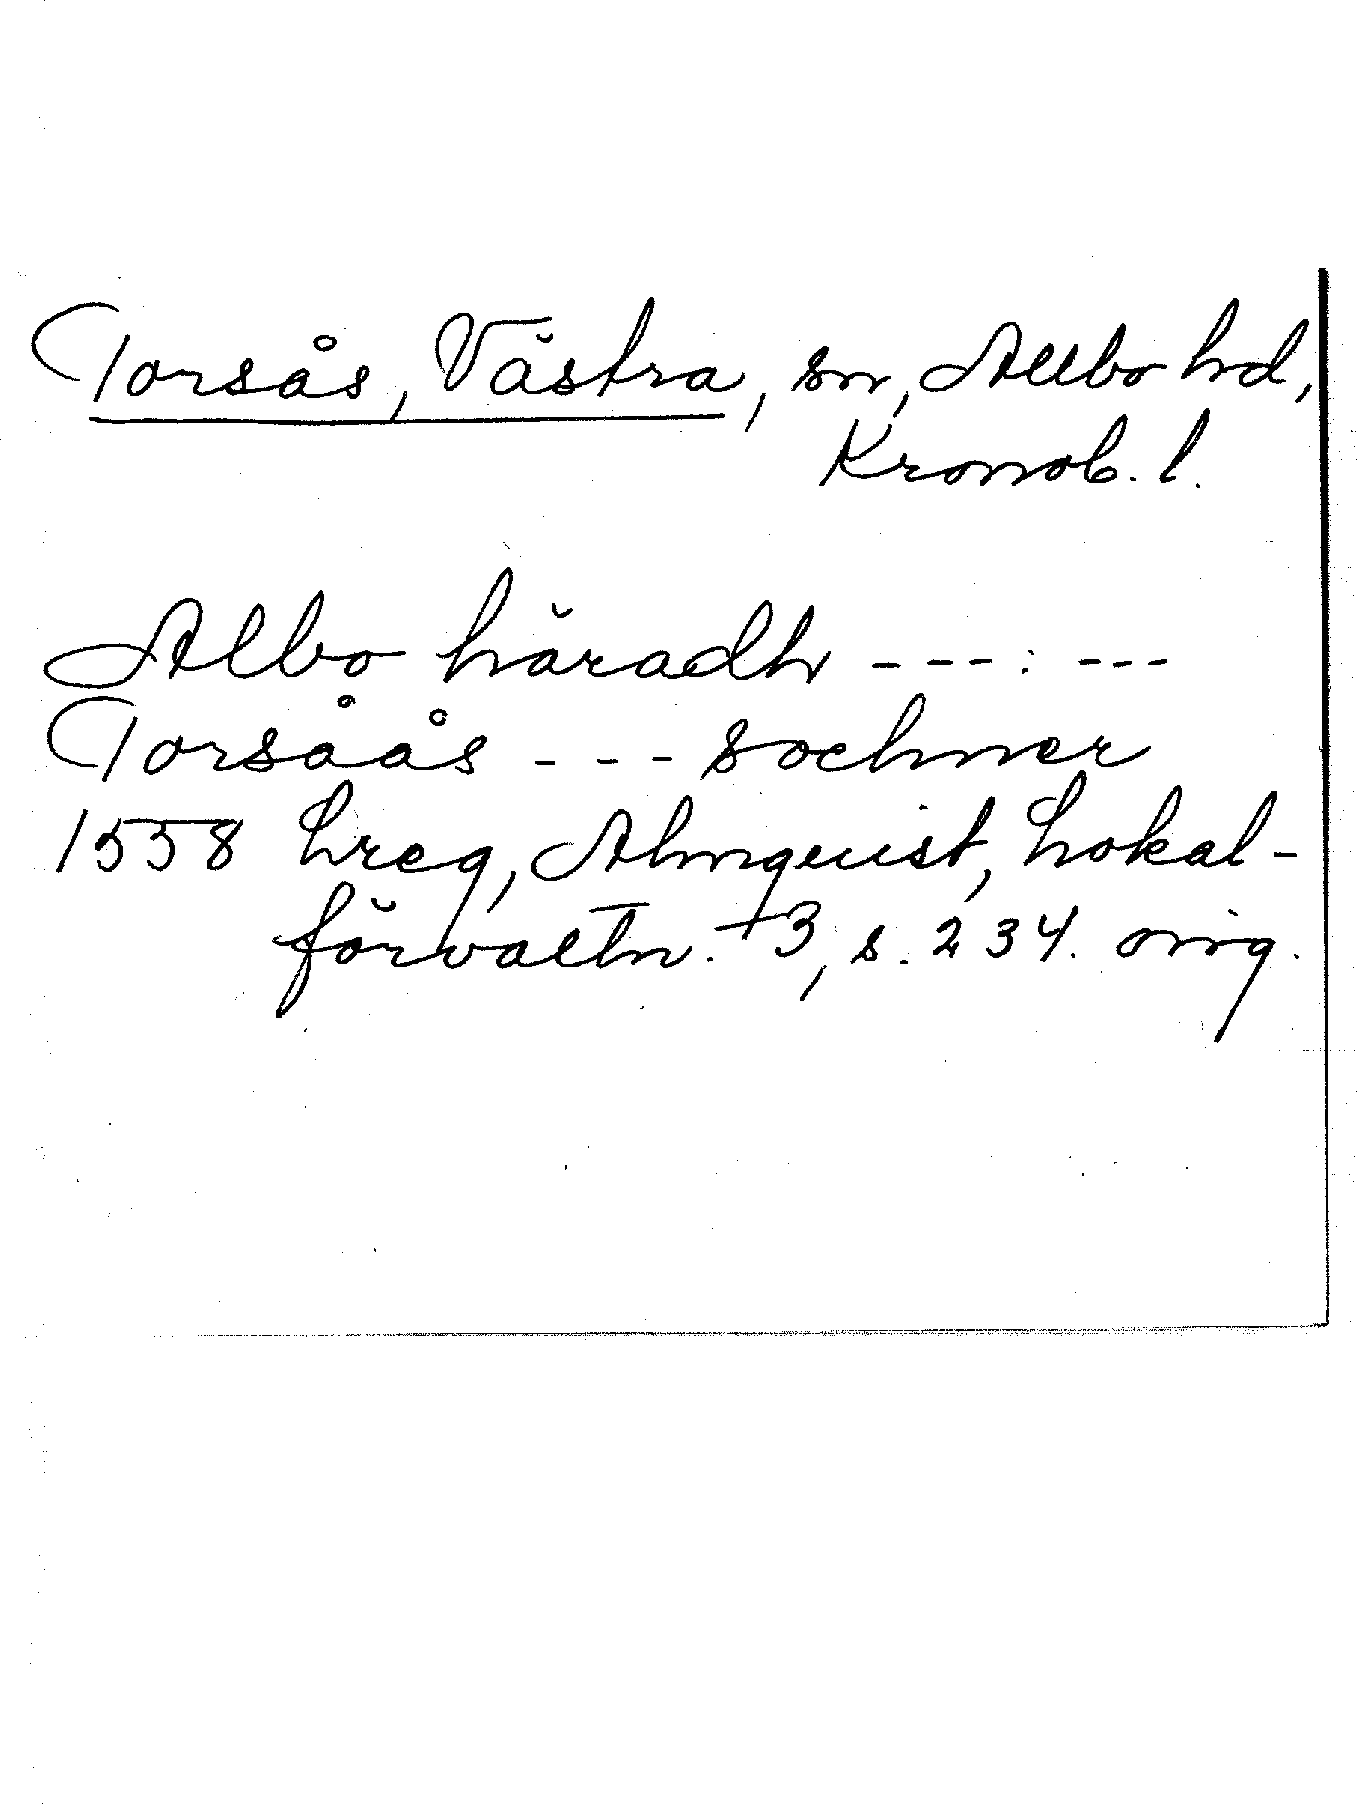 Torsås, Västra, sn, Allbo hd,
Kronob. l.
Albo häradh ---:---
Torsåås --- sochner
1558 Lreg, Almquist, Lokal-
förvaltn. 3, s. 234. orig.